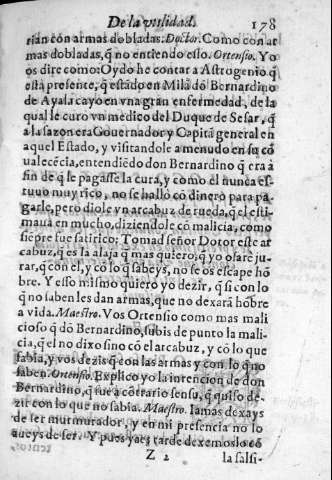 De la vtilidad. 178
rian con armas dobladas. Doctor. Como con ar
mas dobladas, q̃ no entiendo esso. Ortensio. Yo
os dire como: Oydo he contar a Astrogenio q̃
está presente, q̃ estãdo en Milã dõ Bernardino
de Ayala cayo en vna gran enfermedad, de la
qual le curo vn medico del Duque de Sesar, q̃
a la sazon era Gouernador y Capitã general en
aquel Estado, y visitandole a menudo en su cõ
ualecẽcia, entendiẽdo don Bernardino q̃ era à
fin de q̃ le pagasse la cura, y como el nunca es-
tuuo muy rico, no se hallò cõ dinero para pa-
garle, pero diole vn arcabuz de rueda, q̃ el esti-
maua en mucho, diziendole cõ malicia, como
siẽpre fue satirico: Tomad señor Dotor este ar
cabuz, q̃ es la alaja q̃ mas quiero; q̃ yo osare ju-
rar, q̃ con el, y cõ lo q̃ sabeys, no se os escape hõ
bre. Y esso mismo quiero yo dezir, q̃ si con lo
q̃ no saben les dan armas, que no dexarã hõbre
a vida. Maestro. Vos Ortensio como mas mali
cioso q̃ dõ Bernardino, subis de punto la mali-
cia, q̃ el no dixo sino cõ el arcabuz, y cõ lo que
sabia, y vos dezis q̃ con las armas y con lo q̃ no
saben. Ortensio. Explico yo la intencion de don
Bernardino, q̃ fue à cõtrario sensu, q̃ quiso de-
zir con lo que no sabia. Maestro. Iamas dexays
de ser murmurador, y en mi presencia no lo
aueys de ser. Y pues ya es tarde dexemoslo cõ
Z 2 la salsi-